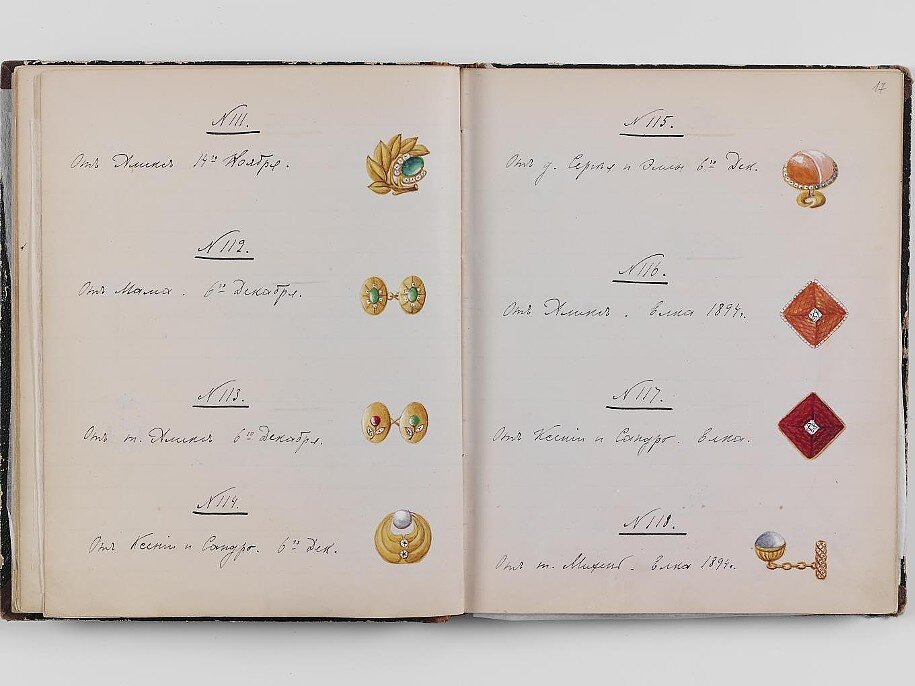 N 111.
Отъ Аликсъ 14го Ноября.
N 112.
Отъ Мама. 6го Декабря.
N 113.
Отъ т. Аликсъ 6го Декабря.
N 114.
Отъ Ксеніи и Сандро. 6го Дек.
17
N 115.
Отъ д. Сергѣя и Эллы 6го Дек.
N 116.
Отъ Аликсъ. елка 1894г.
N 117.
Отъ Ксеніи и Сандро. елка.
N 118.
Отъ т. елка 1894г.